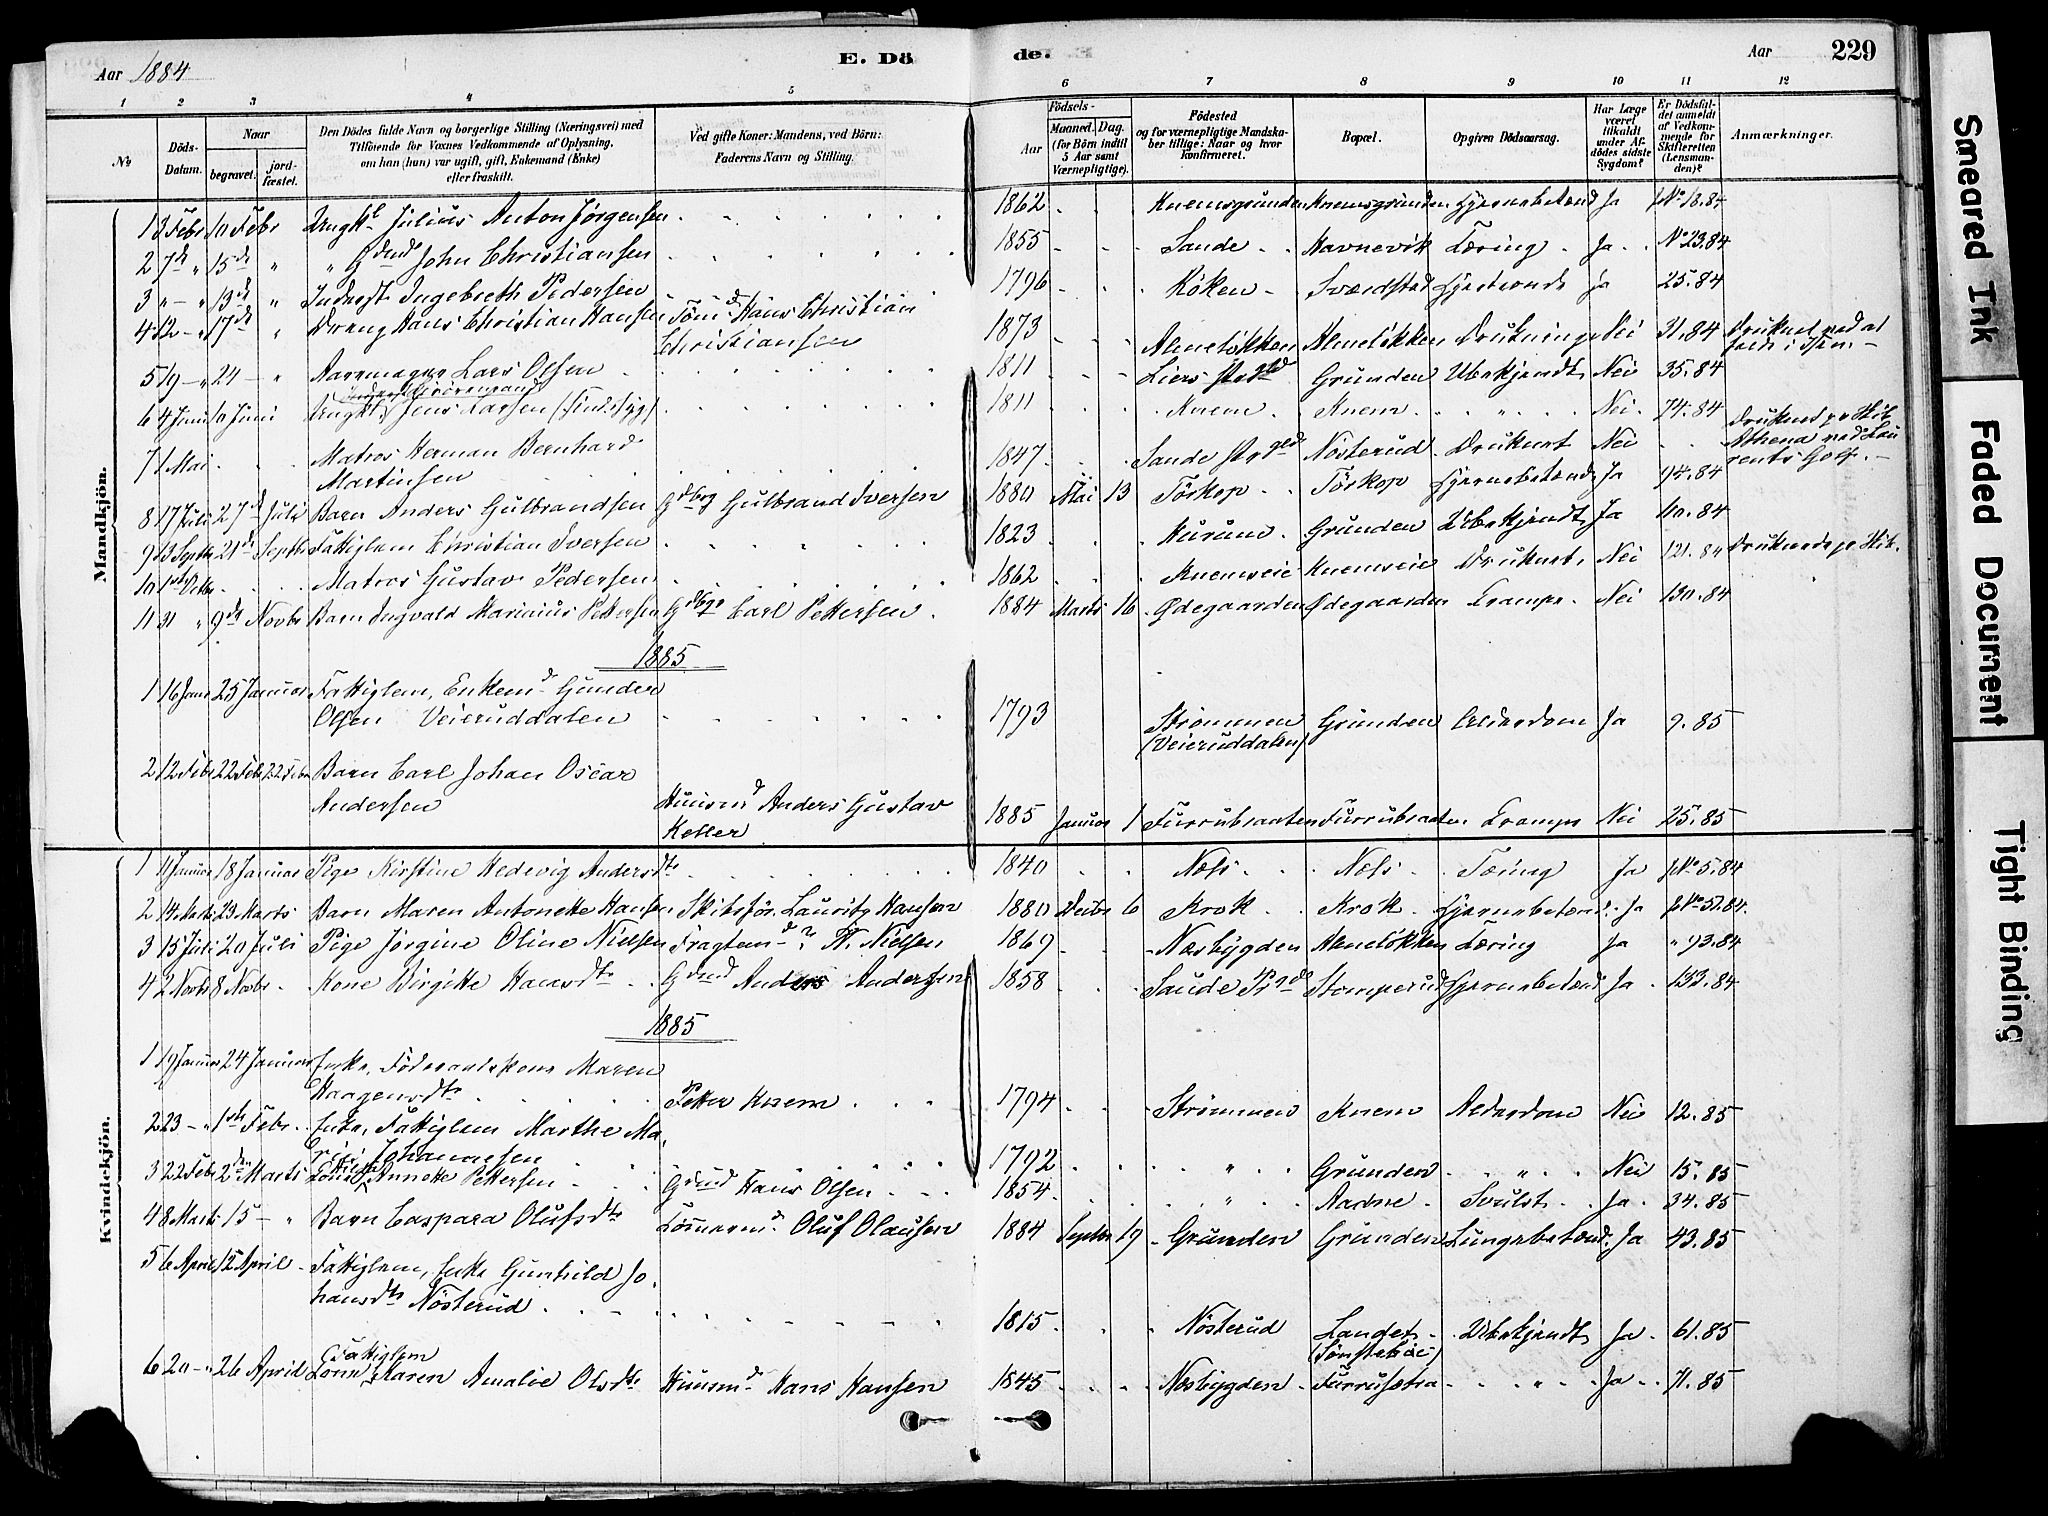 Aar 1884
E. Dö
de.
Aar
229
1 2 3 4 5 6 7 8 9 10 11 12
No
Döds-Datum.
Naar
begravet.
jord-fæstet.
Den Dödes fulde Navn og borgerlige Stilling (Næringsvei) med
Tilföiende for Voxnes Vedkommende af Oplysning,
om han (hun) var ugift, gift, Enkemand (Enke)
eller fraskilt.
Ved gifte Koner: Mandens, ved Börn:
Faderens Navn og Stilling.
Födsels-
Aar
Maaned. Dag.
(for Börn indtil
5 Aar samt
Værnepligtige).
Födested
og for værnepligtige Mandska-
ber tillige: Naar og hvor
konfirmeret.
Bopæl.
Opgiven Dödsaarsag.
Har Læge
været
tilkaldt
under Af-
dödes sidste
Sygdom?
Er Dödsfal-
det anmeldt
af Vedkom-
mende for
Skifteretten
(Lensman-
den)?
Anmærkninger.
Mandkjön.
1 3 Febr 10 Febr Ungk. Julius Anton Jørgensen 1862 Knemsgrunden Knemsgrunden Hjernebetænd Ja No 18.84
2 7de " 15de " " Gdmd John Christiansen 1855 Sande Havnevik Tæring Ja No 23.84
3 " 13de " Inderst Ingebreth Pedersen 1796 Röken Sværdstad Hjertesonde ja 25.84
4 12 " 17de " Dreng Hans Christian Hansen Tömd Hans Christian
Christiansen 1873 Alneløkken Alneløkken Drukning Nei 31.84 Druknet ved at
falde i Isen.
5 19 " 24 " Aaremager Lars Olsen 1811 Liers Prgd Grunden Ubekjendt Nei 35.84
6 4 Juni 10 Juni Ungk. Jens Larsen (Sindssyg) 1811 Knem Knem " Nei 74.84
7 1 Mai Matros Herman Bernhard
Martinsen 1847 Sande Prgd Nösterud Druknet Nei Druknet pr Skib
Athena ved Lau
rents Golf.
8 17 Juli 27de Juli Barn Anders Gulbrandsen Gdbrg Gulbrand Iversen 1880 Mai 13 Törkop Törkop Hjernebetænd Ja 94.84
9 13 Septbr 21de Septbr Fattiglem Christian Iversen 1823 Hurum Grunden Ubekjendt Ja 110.84
10 1ste Octbr Matros Gustav Pedersen 1862 Knemseie Knemseie Druknet Nei 121.84 Druknede pr Skib.
11 31 " 9de Novbr Barn Ingvald Marinius Pettersen Gdbgr Carl Pettersen 1884 Marts 16 Ødegaarden Ødegaarden Krampe Nei 130.84
1885
1 16 Janr 25 Januar Fattiglem, Enkemd Gunder
Olsen Veieruddalen 1793 Strømmen
(Veieruddalen) Grunden Alderdom Ja 9.85
2 12 Febr 22 Febr 22 Febr Barn Carl Johan Oscar
Andersen Huusmd Anders Gustav
Keller 1885 Januar 1 Furrubraaten Furrubraaten Krampe Nei 25.85
Kvindekjön.
1 11 Januar 18 Januar Pige Kirstine Hedevig Andersdtr 1840 Næls Næls Tæring Ja No 5.84
2 14 Marts 23 Marts Barn Maren Antonette Hansen Skibsför. Lauritz Hansen 1880 Decbr 6 Krok Krok Hjernebetænd. Ja No 57.84.
3 15 Juli 20 Juli Pige Jørgine Oline Nielsen Fragtemd ? H. Nielsen 1869 Næsbygden Alneløkken Tæring Ja " 93.84
4 2 Novbr 8 Novbr Kone Birgitte Hansdtr Gdmd Anders Andersen 1858 Sande Prgd Stomperud Hjernebetænd Ja 133.84
1885
1 19 Januar 24 Januar Enke, Føderaadskone Maren
Haagensdtr Petter Knem 1794 Strömmen Knem Alderdom Nei 12.85
2 23 " 1ste Febr. Enke, Fattiglem Marthe Ma-
rie Johannesen 1792 " Grunden " Nei 15.85
3 22 Febr 2den Marts Kone Annette Pettersen Gdmd Hans Olsen 1854 " Aadne Svulst Ja 34.85
4 8 Marts 15 " Barn Caspara Olufsdtr Tömmermd Oluf Olausen 1884 Septbr 19 Grunden Grunden Lungebetænd. Ja 43.85
5 6 April 12 April Fattiglem, Enke Gunhild Jo-
hansdtr Nösterud 1815 Nösterud Landet
(Sønstebøe) Ubekjendt Ja 61.85
6 20 " 26 April Fattiglem
Kone Karen Amalie Olsdtr Huusmd Hans Hansen 1845 Næsbygden Furrusætra " Ja 71.85
Smeared Ink
Faded Document
Tight Binding